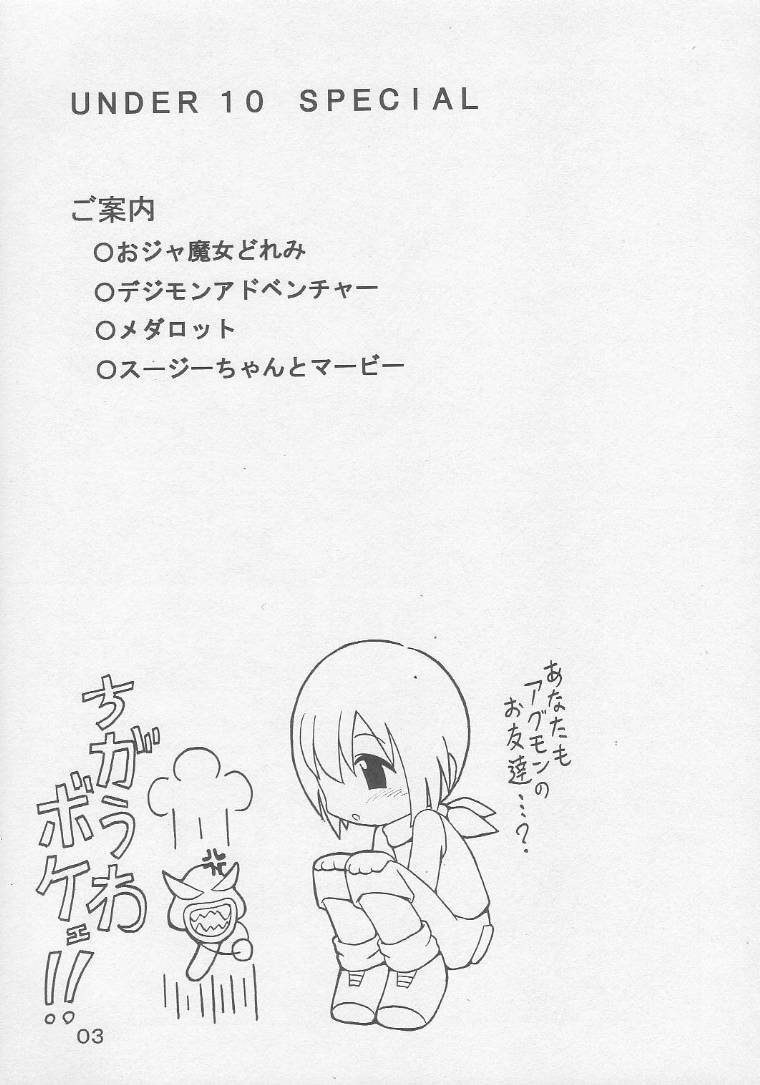 UNDER 10 SPECIAL
ご案内
○おジャ魔女どれみ
○デジモンアドベンチャー
○メダロット
○スージーちゃんとマービー
あなたも
アグモンの
お友達…?
ちがうわ
ボケェ!!
03